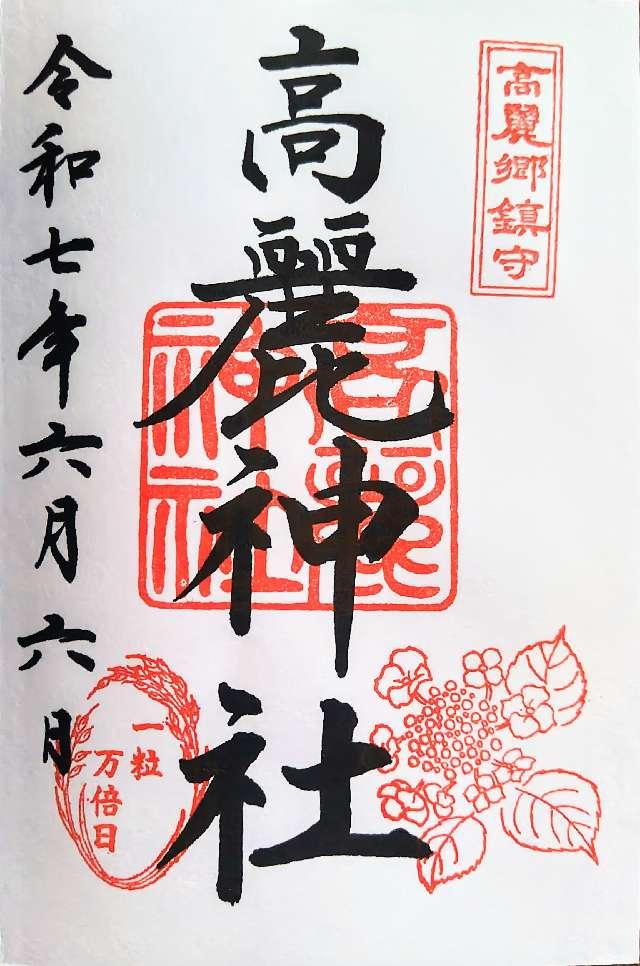 高麗郷鎮守
高麗神社
高麗
神社
令和七年六月六日
一粒
万倍日